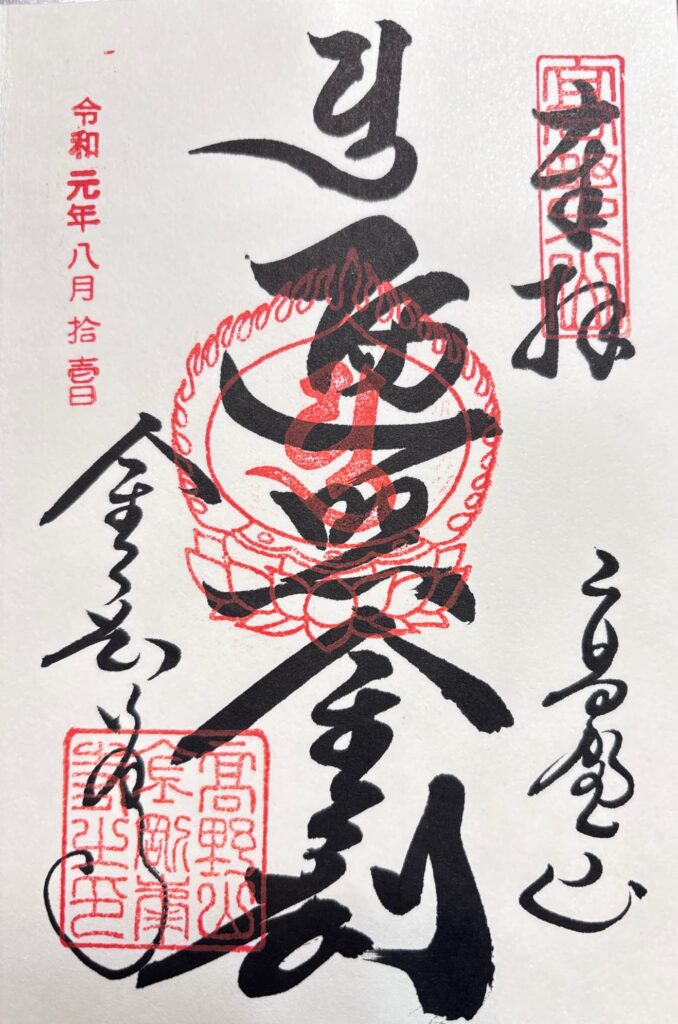 奉拝
高野山
遍照金剛
令和元年八月拾壱日
金剛峯寺
高野山
金剛峯
寺之印